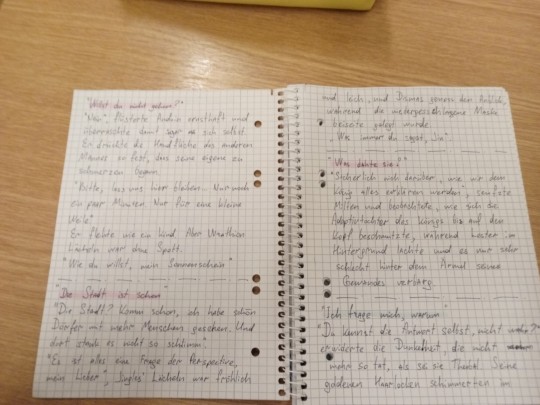 "Willst du nicht gehen?"
"Nein", flüsterte Anduin ernsthaft und
überraschte damit sogar sich selbst.
Er drückte die Handfläche des anderen
Mannes so fest, dass seine eigene zu
schmerzen begann.
"Bitte, lass uns hier bleiben... Nur noch
ein paar Minuten. Nur für eine kleine
Weile"
Er flehte wie ein Kind. Aber Wrathion
Lächeln war ohne Spott.
"Wie du willst, mein Sonnenschein"
"Die Stadt ist schön"
"Die Stadt? Komm schon, ich habe schön
Dörfer mit mehr Menschen gesehen. Und
dort stank es nicht so schlimm".
"Es ist alles eine Frage der Perspektive,
mein Lieber", Lächeln war fröhlich
und leicht, und genoss den Anblick,
während die Maske
beiseite gelegt wurde.
"Wie immer du sagst,
"Was dachte sie?"
"Sicherlich nicht darüber, wie wir dem
König alles erklären werden", seufzte
Milten und beobachtete, wie sich die
Adoptivtochter des Königs bis auf den
Kopf beschmutzte, während Lester im
Hintergrund lachte und es nur sehr
schlecht hinter dem Ärmel seines
Gewandes verbarg.
"Ich frage mich, warum"
"Du kennst die Antwort selbst, nicht
erwiderte die Dunkelheit, die nicht
mehr so tat, als sei sie Seine
goldenen Haarlocken schimmerten im